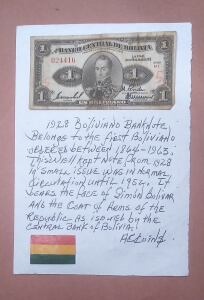 BANCO CENTRAL DE BOLIVIA
1
1
024416
1
1
UN BOLIVIANO
1928 BOLIVIANO BANKNOTE
BELONGS TO THE FIRST BOLIVIANO
ORDERED BETWEEN 1864-1963.
THIS WELL KEPT NOTE FROM 1928
IN SMALL ISSUE WAS IN NORMAL
CIRCULATION UNTIL 1954. IT
BEARS THE FACE OF SIMON BOLIVAR
AND THE COAT OF ARMS OF THE
REPUBLIC AS ISSUED BY THE
CENTRAL BANK OF BOLIVIA.